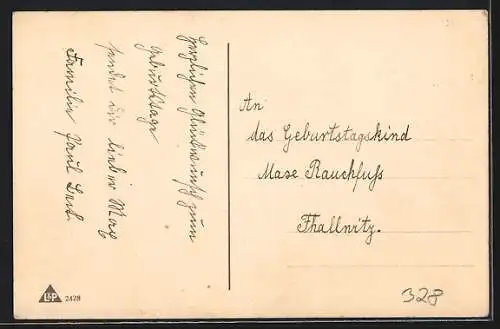 Herzlichen Glückwunsch zum
Geburtstage
sendet dir lieber Max
Familie Paul
An
das Geburtstagskind
Maxe Rauchfuß
Thallwitz.
L&P
2428
328